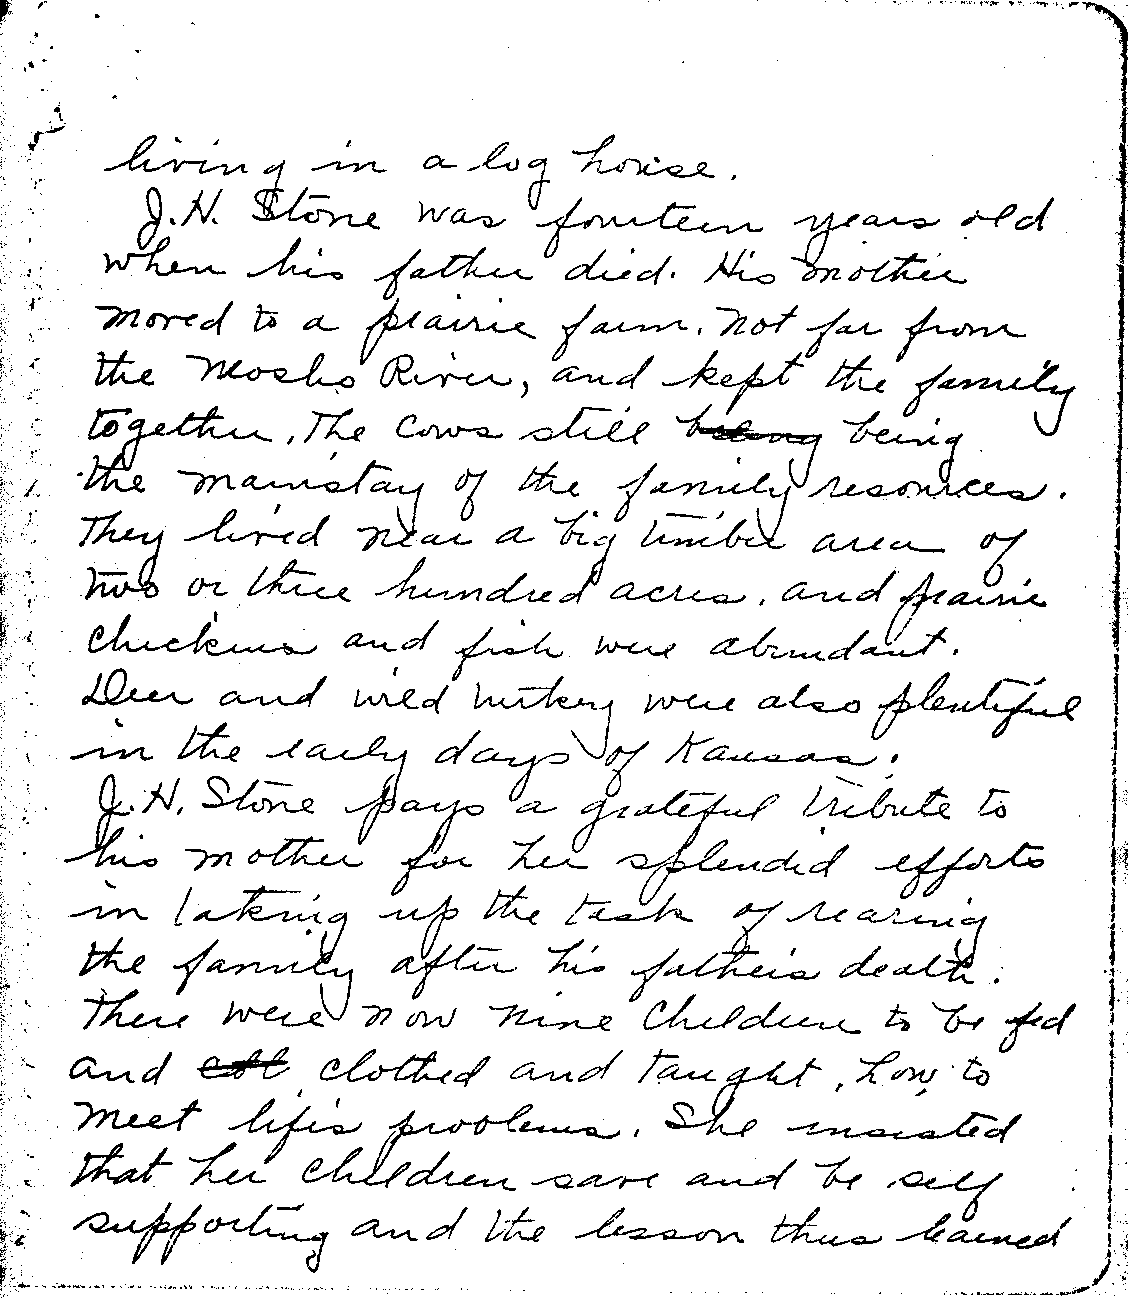 living in a log house.
J.H. Stone was fourteen years old
when his father died. His mother
moved to a prairie farm. not far from
the Neosho River, and kept the family
together. The cows still being
the mainstay of the family resources.
They lived near a big timber area of
two or three hundred acres. and prairie
chickens and fish were abundant.
Deer and wild turkey were also plentiful
in the early days of Kansas.
J.H. Stone pays a grateful tribute to
his mother for her splendid efforts
in taking up the task of rearing
the family after his father's death.
There were now nine children to be fed
and clothed and taught, how to
meet life's problems. She insisted
that her children save and be self
supporting and the lesson thus learned